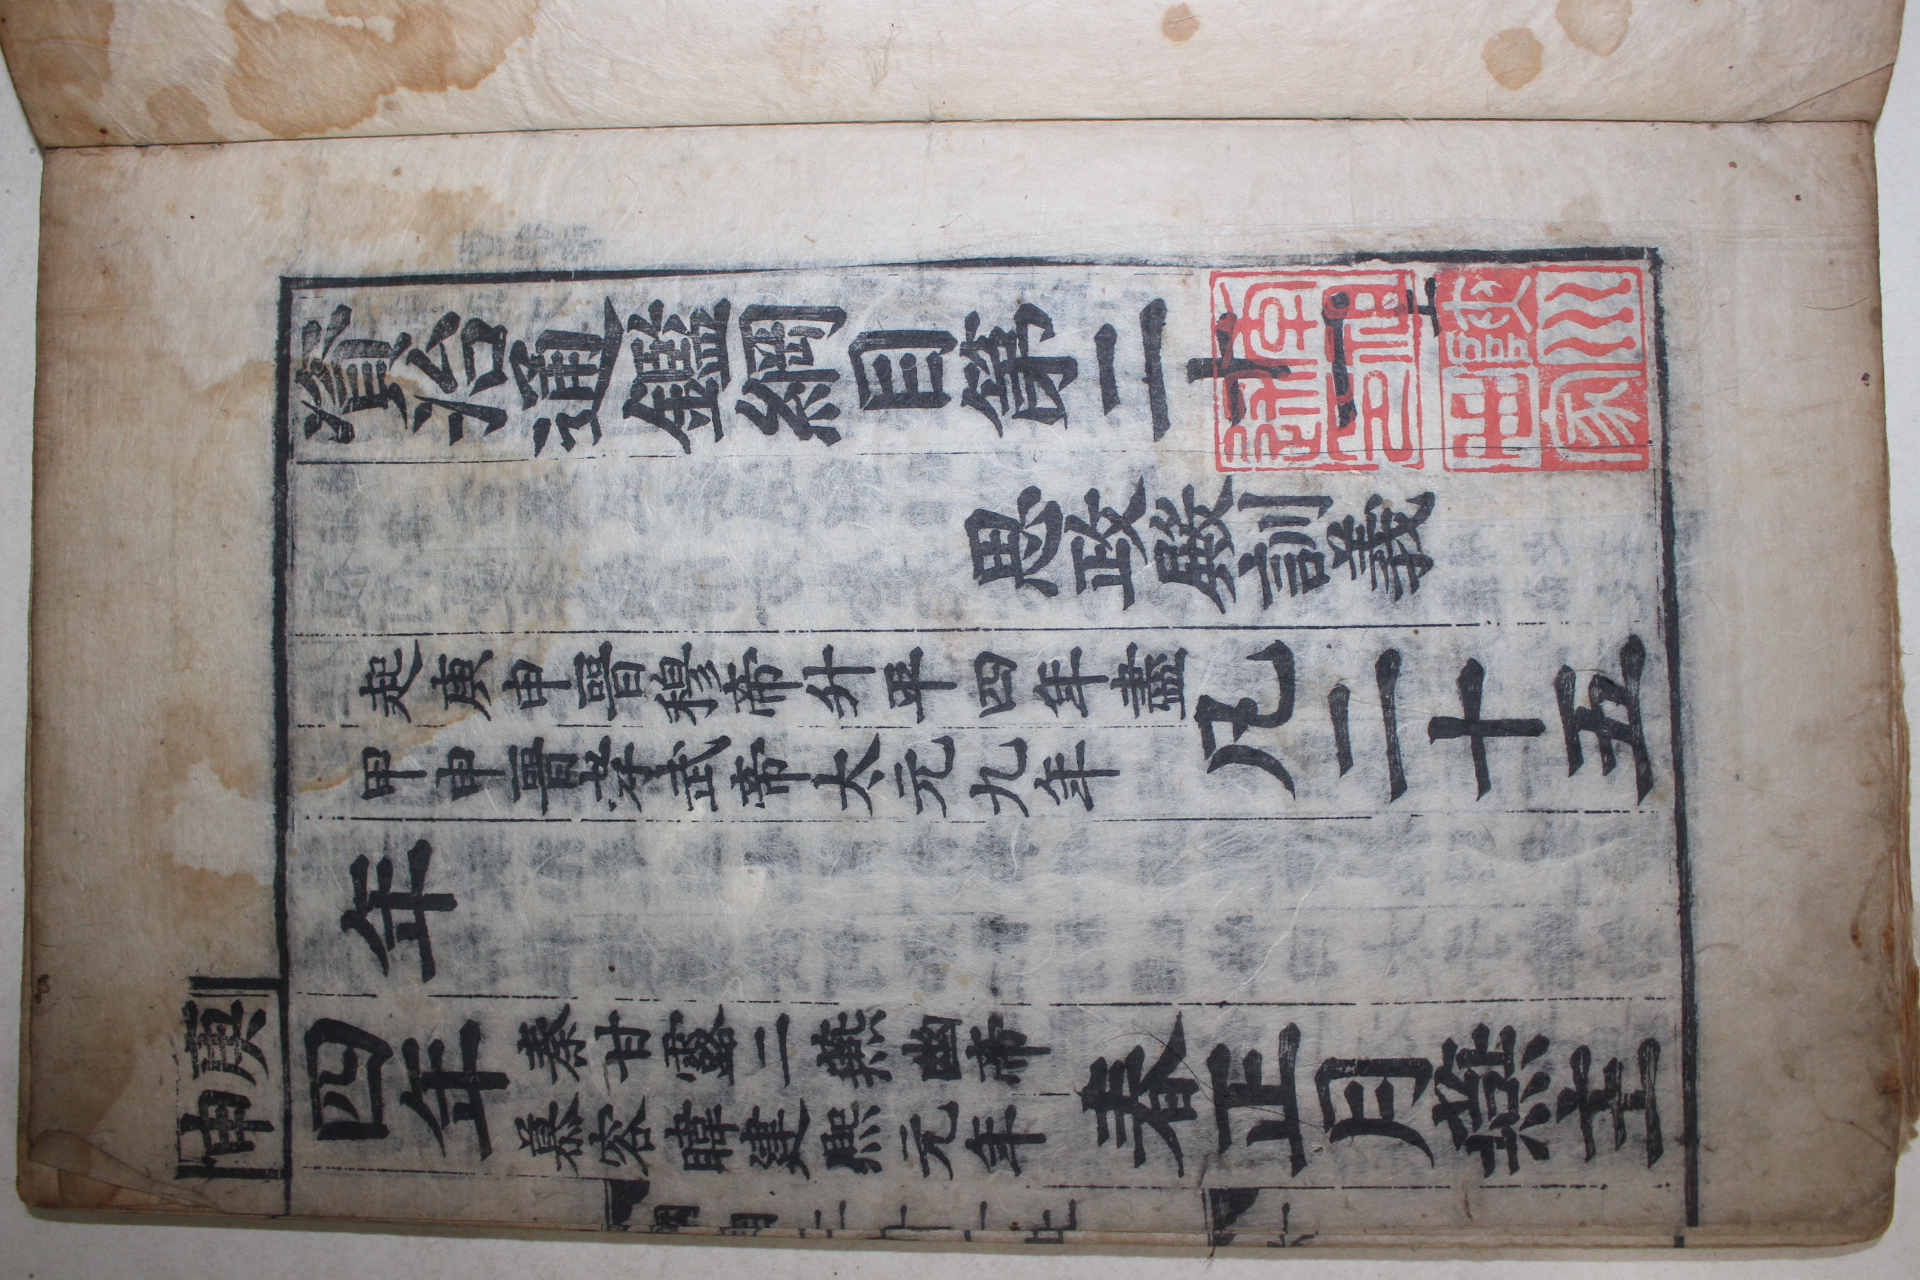 資治通鑑綱目第二十一上
思政殿訓義
起庚申晉穆帝升平四年盡
甲申晉孝武帝太元九年
凡二十五
年
庚申
四年
秦甘露二燕幽帝
慕容暐建熙元年
春正月燕主